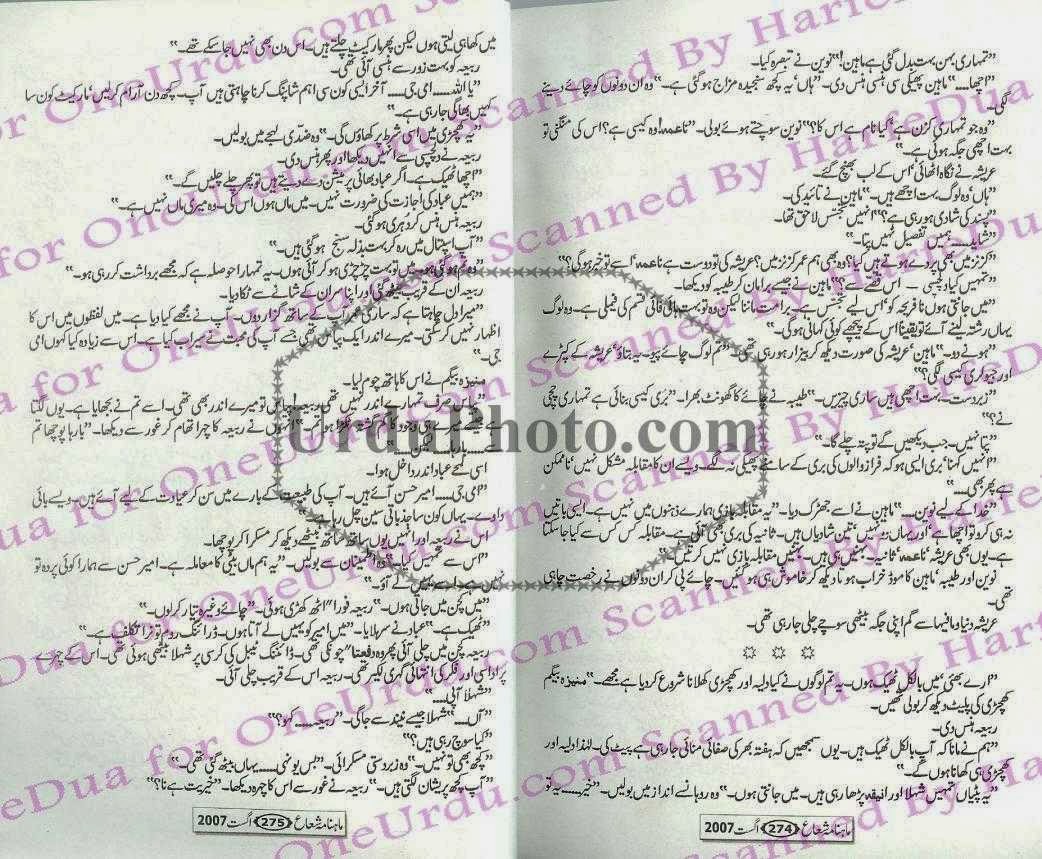 ”تمہاری بہن بہت بدل گئی ہے ماہین!“ نوین نے تبصرہ کیا۔
”اچھا.....“ ماہین پھیکی سی ہنسی ہنس دی۔ ”ہاں‘ یہ کچھ سنجیدہ مزاج ہو گئی ہے۔“ وہ ان دونوں کو چائے دینے
لگی۔
”وہ جو تمہاری کزن ہے‘ کیا نام ہے اس کا؟“ نوین سوچتے ہوئے بولی۔ ”ناعمہ! وہ کیسی ہے؟ اس کی منگنی تو
بہت اچھی جگہ ہوئی ہے۔“
عریشہ نے نگاہ اٹھائی‘ اس کے لب بھنچ گئے۔
”ہاں‘ وہ لوگ بہت اچھے ہیں۔“ ماہین نے تائید کی۔
”پسند کی شادی ہو رہی ہے؟“ انہیں تجسس لاحق تھا۔
”شاید..... ہمیں تفصیل نہیں پتا۔“
”کزنز میں بھی پردے ہوتے ہیں کیا؟ وہ بھی ہم عمر کزنز میں؟ عریشہ کی تو دوست ہے ناعمہ‘ اسے تو خبر ہو گی؟“
”تمہیں کیا دلچسپی – اس قصے سے؟“ ماہین نے جیسے برا مان کر طیبہ کو دیکھا۔
”میں جانتی ہوں نا فریحہ کو‘ اس لیے تجسس ہے۔ برا مت ماننا لیکن وہ تو بہت ہائی فائی قسم کی فیملی ہے۔ وہ لوگ
یہاں رشتہ لینے آئے تو یقیناً اس کے پیچھے کوئی کہانی ہو گی۔“
”ہونے دو۔“ ماہین‘ عریشہ کی صورت دیکھ کر بیزار ہو رہی تھی۔ ”تم لوگ چائے پیو۔ یہ بتاؤ‘ عریشہ کے کپڑے
اور جیولری کیسی لگی؟“
”زبردست۔ بہت اچھی ہیں ساری چیزیں۔“ طیبہ نے چائے کا گھونٹ بھرا۔ ”بری کیسی بنائی ہے تمہاری چچی
نے؟“
”پتا نہیں۔ جب دیکھیں گے تو پتہ چلے گا۔“
”انہیں کہنا‘ بری ایسی ہو کہ فراز والوں کی بری کے سامنے پھیکی نہ لگے۔ ویسے ان کا مقابلہ مشکل نہیں‘ ناممکن
ہے پھر بھی.....“
”خدا کے لیے نوین.....“ ماہین نے اسے جھڑک دیا۔ ”یہ مقابلہ بازی ہمارے ذہنوں میں نہیں ہے۔ ایسی باتیں
نہ ہی کرو تو اچھا ہے اور یہاں دو نہیں‘ تین شادیاں ہیں۔ ثانیہ کی بری بھی آئی ہے۔ مقابلہ کس کس سے کیا جا سکتا
ہے۔ یوں بھی عریشہ‘ ناعمہ‘ ثانیہ بہنیں ہی ہیں۔ بہنیں مقابلہ بازی نہیں کرتیں۔“
نوین اور طیبہ‘ ماہین کا موڈ خراب ہوتا دیکھ کر خاموش ہی ہو گئیں۔ چائے پی کر ان دونوں نے رخصت چاہی
تھی۔
عریشہ دنیا و مافیہا سے گم اپنی جگہ بیٹھی سوچے چلی جا رہی تھی۔
☼ ☼ ☼
”ارے بھئی‘ میں بالکل ٹھیک ہوں۔ یہ تم لوگوں نے کیا دلیہ اور کھچڑی کھلانا شروع کر دیا ہے مجھے۔“ منیزہ بیگم
کھچڑی کی پلیٹ دیکھ کر بولی تھیں۔
ربیعہ ہنس دی۔
”ہم نے مانا کہ آپ بالکل ٹھیک ہیں۔ یوں سمجھیں کہ ہفتہ بھر کی صفائی منائی جا رہی ہے پیٹ کی۔ لہٰذا دلیہ اور
کھچڑی ہی کھانا ہوں گے۔“
”یہ پٹیاں تمہیں شہلا اور انیقہ پڑھا رہی ہیں۔ میں جانتی ہوں۔“ وہ روہانسے انداز میں بولیں۔ ”خیر..... یہ تو
ماہنامہ شعاع 274 اگست 2007
میں کھا ہی لیتی ہوں لیکن پھر مارکیٹ چلتے ہیں۔ اس دن بھی نہیں جا سکے تھے۔“
ربیعہ کو بہت زور سے ہنسی آئی تھی۔
”یا اللہ..... امی جی..... آخر ایسی کون سی اہم شاپنگ کرنا چاہتی ہیں آپ۔ کچھ دن آرام کر لیں‘ مارکیٹ کون سا
کہیں بھاگی جا رہی ہے۔“
”یہ کھچڑی میں اسی شرط پر کھاؤں گی۔“ وہ ضدی لہجے میں بولیں۔
ربیعہ نے دلچسپی سے انہیں دیکھا اور پھر ہنس دی۔
”اچھا ٹھیک ہے۔ اگر عباد بھائی پرمیشن دے دیتے ہیں تو پھر چلے چلیں گے۔“
”ہمیں عباد کی اجازت کی ضرورت نہیں۔ میں ماں ہوں اس کی۔ وہ میری ماں نہیں ہے۔“
ربیعہ ہنس ہنس کر دہری ہو گئی۔
”آپ اسپتال میں رہ کر بہت بذلہ سنج ہو گئی ہیں۔“
”وہ تم ہو گی ہو۔ میں تو بہت چڑچڑی ہو کر آئی ہوں۔ یہ تمہارا حوصلہ ہے کہ مجھے برداشت کر رہی ہو۔“
ربیعہ ان کے قریب بیٹھ گئی اور اپنا سر ان کے شانے سے ٹکا دیا۔
”میرا دل چاہتا ہے کہ ساری عمر آپ کے ساتھ گزار دوں۔ آپ نے مجھے کیا دیا ہے۔ میں لفظوں میں اس کا
اظہار نہیں کر سکتی۔ میرے اندر ایک پیاس تھی جسے آپ کی محبت نے سیراب کیا ہے۔ اس سے زیادہ کیا کہوں امی
جی۔“
منیزہ بیگم نے اس کا ہاتھ چوم لیا۔
”پیاس صرف تمہارے اندر نہیں تھی ربیعہ! پیاس تو میرے اندر بھی تھی۔ اسے تم نے بجھایا ہے۔ یوں لگتا
ہے مجھے میرے ہی وجود کا گم شدہ ٹکڑا ہو تم۔“ انہوں نے ربیعہ کا چہرا تھام کر غور سے دیکھا۔ ”بارہا پوچھا تم
اسی لمحے عباد اندر داخل ہوا۔
”امی جی..... امیر حسن آئے ہیں۔ آپ کی طبیعت کے بارے میں سن کر عیادت کے لیے آئے ہیں۔ ویسے بائی
دا وے۔ یہاں کون سا جذباتی سین چل رہا ہے۔“
اس نے ربیعہ اور انہیں یوں ساتھ ساتھ بیٹھے دیکھ کر مسکرا کر پوچھا۔
”اس سے تمہیں کیا۔“ وہ اطمینان سے بولیں۔ ”یہ ہم ماں بیٹی کا معاملہ ہے۔ امیر حسن سے ہمارا کوئی پردہ تو
نہیں ہے۔ اسے یہیں لے آؤ۔“
”میں کچن میں جاتی ہوں۔“ ربیعہ فوراً اٹھ کھڑی ہوئی۔ ”چائے وغیرہ تیار کر لوں۔“
”ٹھیک ہے۔“ عباد نے سر ہلایا۔ ”میں امیر کو یہیں لے آتا ہوں۔ ڈرائنگ روم تو نرا تکلف ہے۔“
ربیعہ کچن میں چلی آئی پھر وہ دفعتاً چونکی تھی۔ ڈائننگ ٹیبل کی کرسی پر شہلا بیٹھی ہوئی تھی۔ اس کے چہرے
پر اداسی اور فکر کی انتہائی گہری لکیر تھی۔ ربیعہ اس کے قریب چلی آئی۔
”شہلا آپی.....“
”آں.....“ شہلا جیسے نیند سے جاگی۔ ”ربیعہ..... کہو؟“
”کیا سوچ رہی ہیں؟“
”کچھ بھی تو نہیں۔“ وہ زبردستی مسکرائی۔ ”بس یونہی..... یہاں بیٹھ گئی تھی۔“
”آپ کچھ پریشان لگتی ہیں۔“ ربیعہ نے غور سے اس کا چہرہ دیکھا۔ ”خیریت ہے نا؟“
ماہنامہ شعاع 275 اگست 2007
UrduPhoto.com
Scanned By HarfeDua for OneUrdu.com